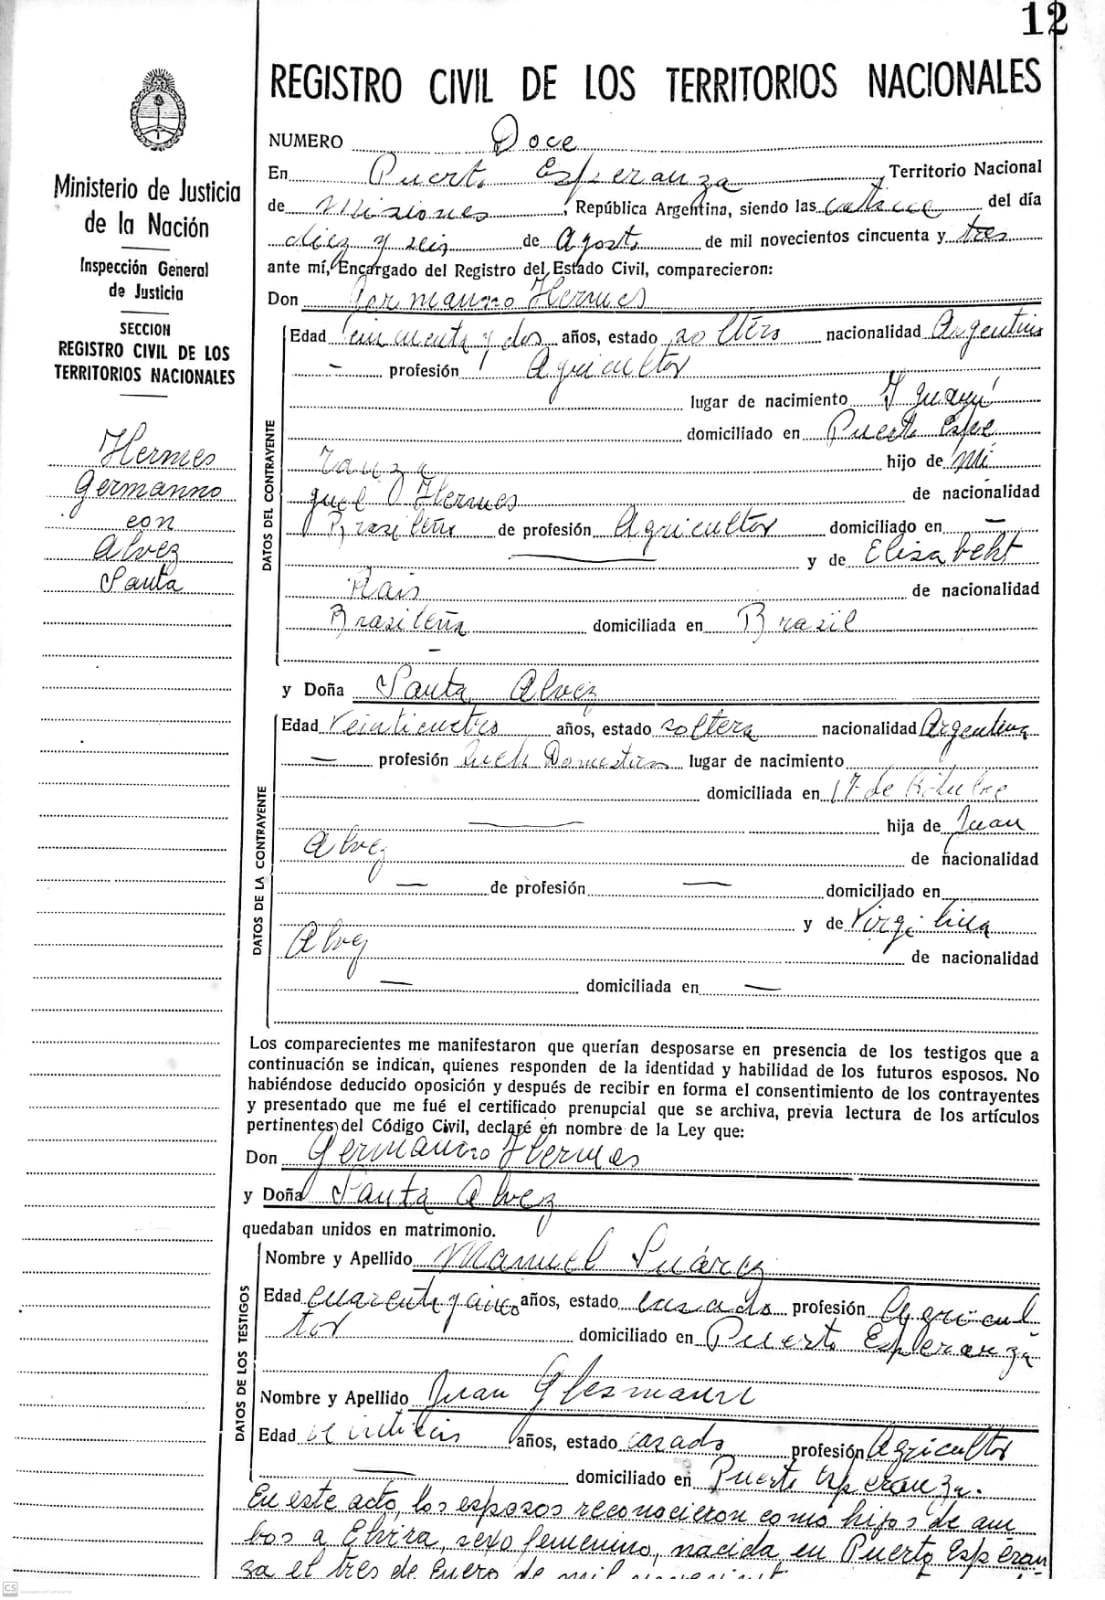 12
REGISTRO CIVIL DE LOS TERRITORIOS NACIONALES
Ministerio de Justicia
de la Nación
Inspección General
de Justicia
SECCION
REGISTRO CIVIL DE LOS
TERRITORIOS NACIONALES
Hermes
Germanno
con
Alvez
Santa
NUMERO Doce
En Puerto Esperanza, Territorio Nacional
de Misiones, República Argentina, siendo las catorce del día
diez y seis de Agosto de mil novecientos cincuenta y tres
ante mí, Encargado del Registro del Estado Civil, comparecieron:
Don Germanno Hermes
DATOS DEL CONTRAYENTE
Edad cincuenta y dos años, estado soltero nacionalidad Argentino
— profesión Agricultor
lugar de nacimiento
domiciliado en Puerto Espe
ranza hijo de Mi
guel O Hermes de nacionalidad
Brasileño de profesión Agricultor domiciliado en —
— y de Elisabeht
Rais de nacionalidad
Brasileña domiciliada en Brasil
—
y Doña Santa Alvez
DATOS DE LA CONTRAYENTE
Edad veinticuatro años, estado soltera nacionalidad Argentina
— profesión lugar de nacimiento
domiciliada en 17 de Octubre
— hija de Juan
Alvez de nacionalidad
— de profesión — domiciliado en
y de Virgilina
Alvez de nacionalidad
— domiciliada en —
Los comparecientes me manifestaron que querían desposarse en presencia de los testigos que a
continuación se indican, quienes responden de la identidad y habilidad de los futuros esposos. No
habiéndose deducido oposición y después de recibir en forma el consentimiento de los contrayentes
y presentado que me fué el certificado prenupcial que se archiva, previa lectura de los artículos
pertinentes del Código Civil, declaré en nombre de la Ley que:
Don Germanno Hermes
y Doña Santa Alvez
quedaban unidos en matrimonio.
DATOS DE LOS TESTIGOS
Nombre y Apellido Manuel Suárez
Edad cuarenta y cinco años, estado casado profesión Agricul
tor domiciliado en Puerto Esperanza
Nombre y Apellido Juan Glesmann
Edad veintiseis años, estado casado profesión Agricultor
— domiciliado en Puerto Esperanza.
En este acto, los esposos reconocieron como hijos de am
bos a Elvira, sexo femenino, nacida en Puerto Esperan
za el tres de Enero de mil novecient
CS